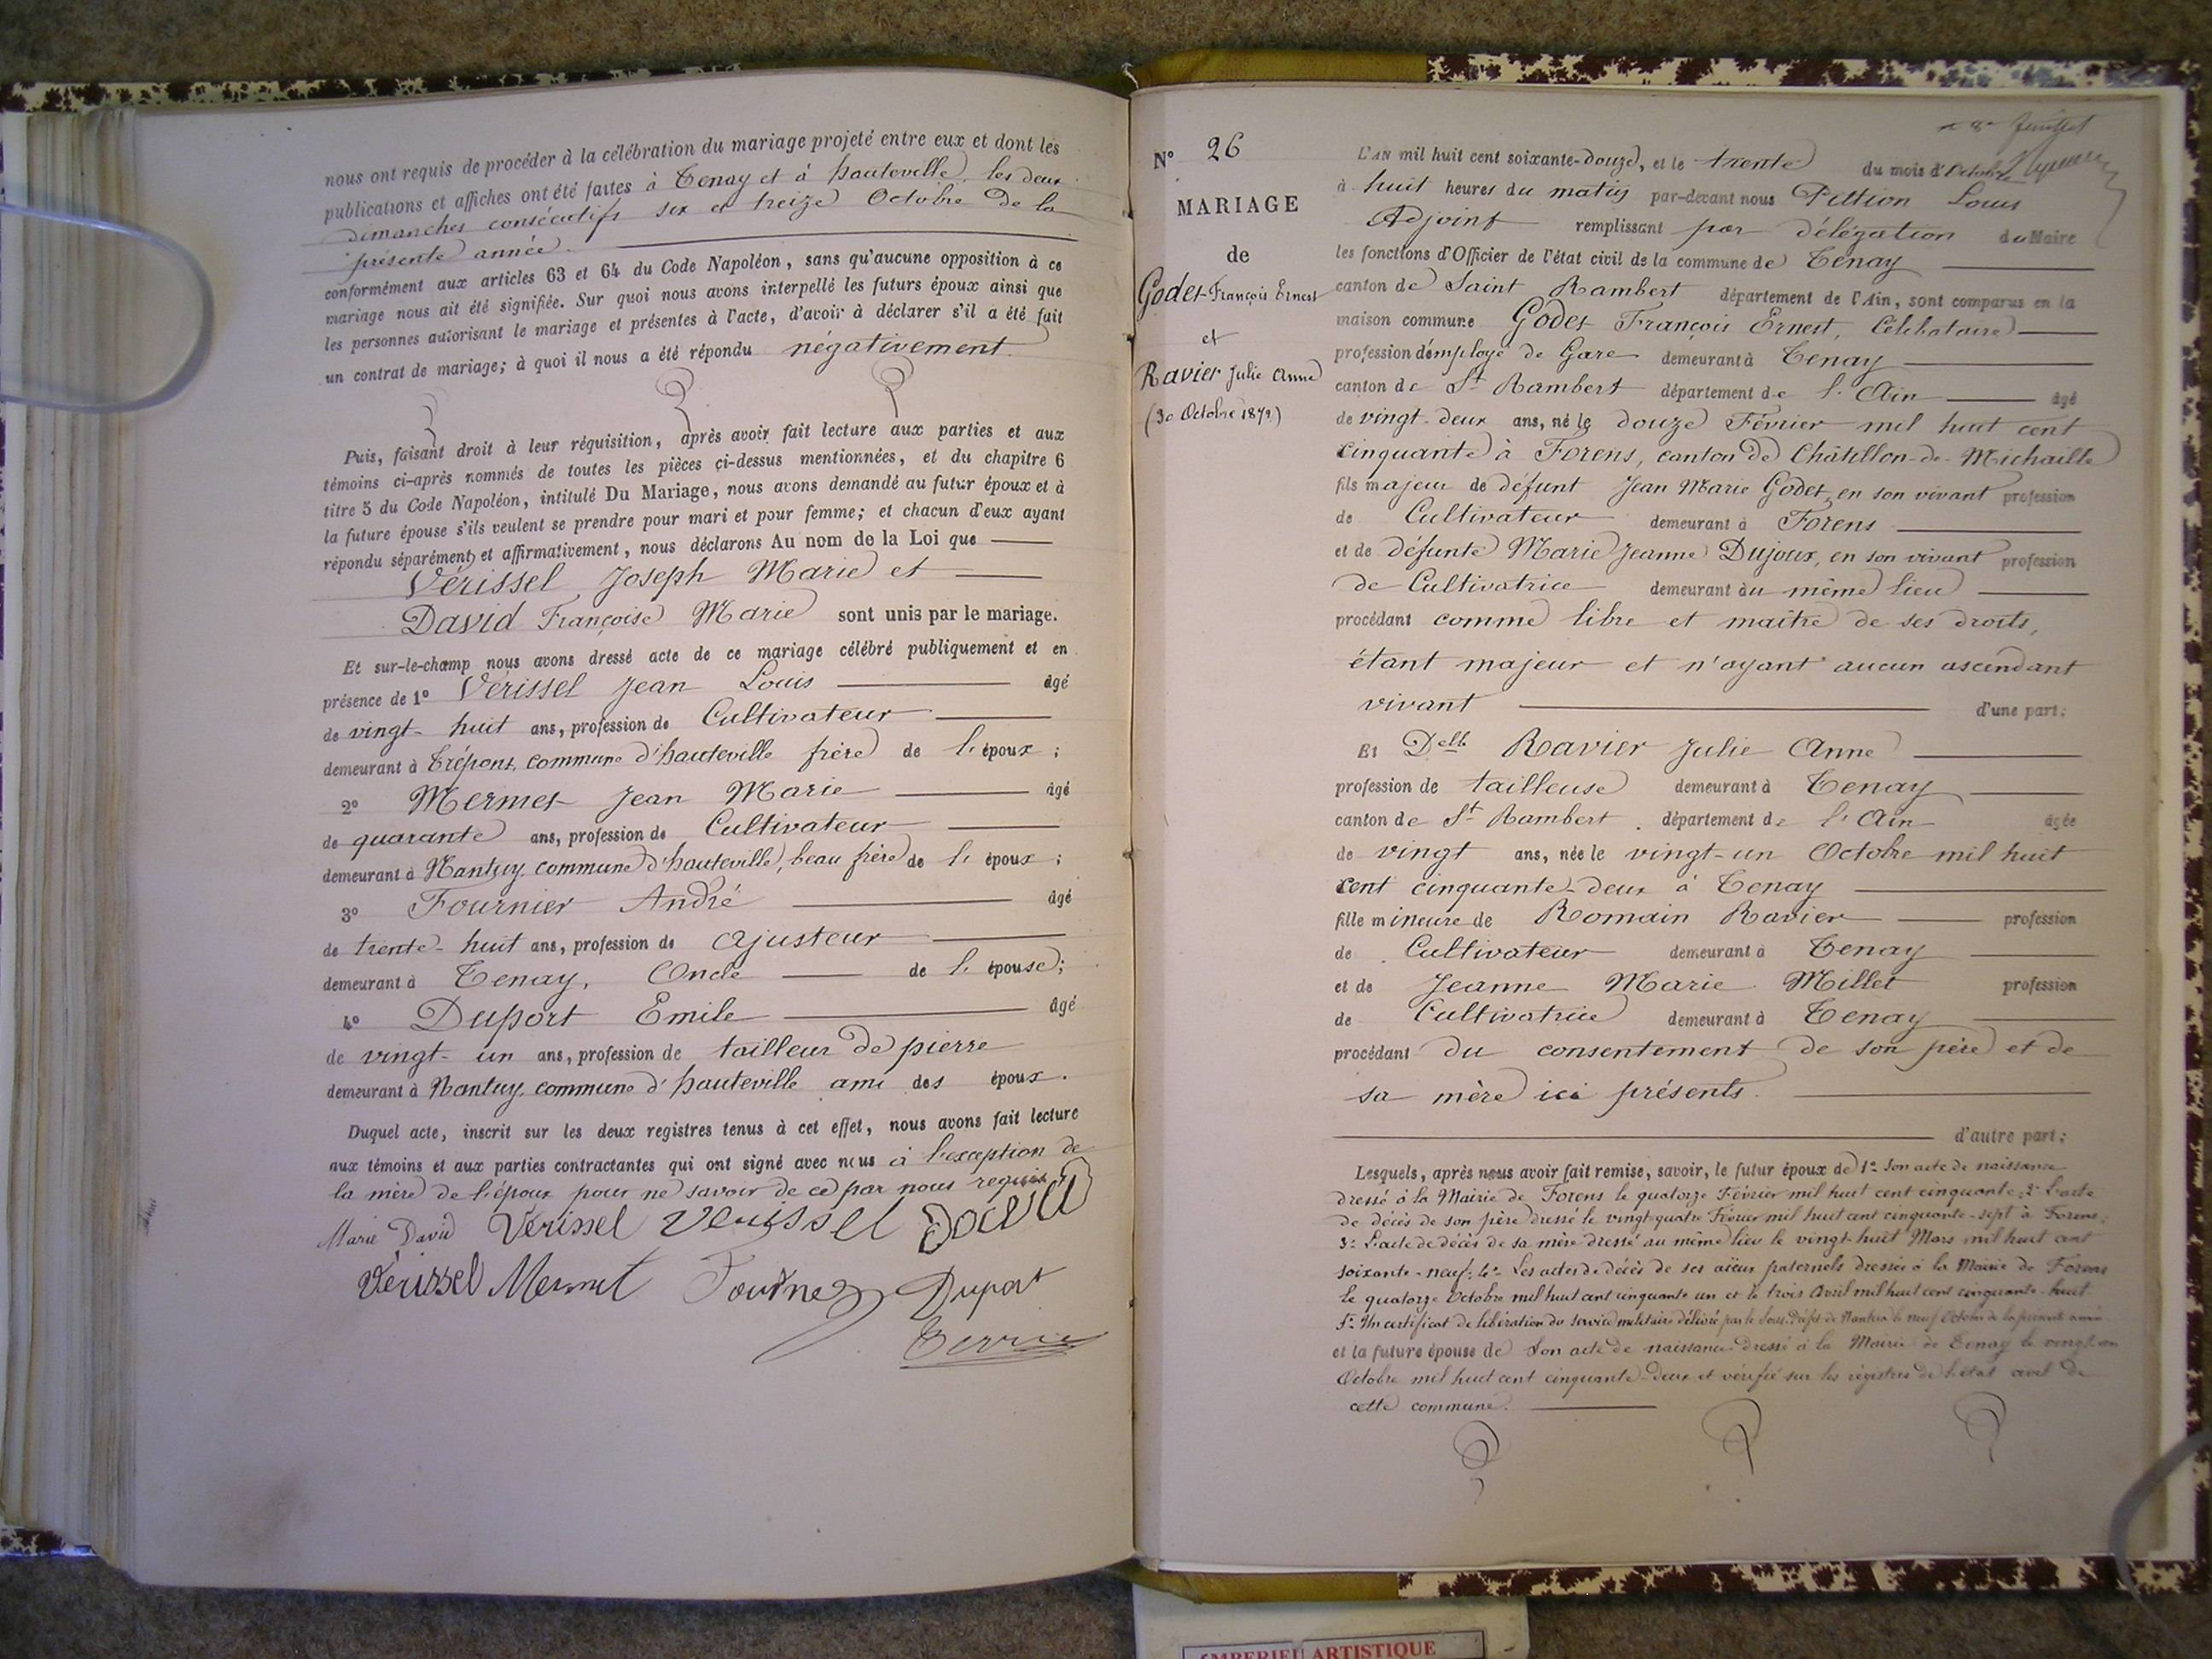 nous ont requis de procéder à la célébration du mariage projeté entre eux et dont les
publications et affiches ont été faites à Tenay et à hauteville, les deux
dimanches consécutifs six et treize Octobre de la
présente année.
conformément aux articles 63 et 64 du Code Napoléon, sans qu'aucune opposition à ce
mariage nous ait été signifiée. Sur quoi nous avons interpellé les futurs époux ainsi que
les personnes autorisant le mariage et présentes à l'acte, d'avoir à déclarer s'il a été fait
un contrat de mariage; à quoi il nous a été répondu négativement.
Puis, faisant droit à leur réquisition, après avoir fait lecture aux parties et aux
témoins ci-après nommés de toutes les pièces çi-dessus mentionnées, et du chapitre 6
titre 5 du Code Napoléon, intitulé Du Mariage, nous avons demandé au futur époux et à
la future épouse s'ils veulent se prendre pour mari et pour femme; et chacun d'eux ayant
répondu séparément et affirmativement, nous déclarons Au nom de la Loi que
Vérissel Joseph Marie et
David Françoise Marie sont unis par le mariage.
Et sur-le-champ nous avons dressé acte de ce mariage célébré publiquement et en
présence de 1° Vérissel Jean Louis âgé
de vingt-huit ans, profession de Cultivateur
demeurant à Trépont, commune d'hauteville frère de l'époux;
2° Mermet Jean Marie âgé
de quarante ans, profession de Cultivateur
demeurant à Nantuy, commune d'hauteville, beau frère de l'époux;
3° Fournier André âgé
de trente-huit ans, profession de ajusteur
demeurant à Tenay, Oncle de l'épouse;
4° Duport Emile âgé
de vingt-un ans, profession de tailleur de pierre
demeurant à Nantuy, commune d'hauteville ami des époux.
Duquel acte, inscrit sur les deux registres tenus à cet effet, nous avons fait lecture
aux témoins et aux parties contractantes qui ont signé avec nous à l'exception de
la mère de l'époux pour ne savoir de ce par nous requis
Marie David Vérissel Verissel David
Vérissel Mermet Fournier Duport
N° 26
MARIAGE
de
Godet François Ernest
et
Ravier Julie Anne
(30 Octobre 1872)
8e feuillet
L'AN mil huit cent soixante-douze, et le trente du mois d'Octobre
à huit heures du matin par-devant nous Pittion Louis
Adjoint remplissant par délégation du Maire
les fonctions d'Officier de l'état civil de la commune de Tenay
canton de Saint Rambert département de l'Ain, sont comparus en la
maison commune Godet François Ernest, Célibataire
profession d'employé de Gare demeurant à Tenay
canton de St Rambert département de l'Ain âgé
de vingt-deux ans, né le douze Février mil huit cent
cinquante à Forens, canton de Châtillon-de-Michaille
fils majeur de défunt Jean Marie Godet, en son vivant profession
de Cultivateur demeurant à Forens
et de défunte Marie Jeanne Dujoux, en son vivant profession
de Cultivatrice demeurant au même lieu
procédant comme libre et maître de ses droits,
étant majeur et n'ayant aucun ascendant
vivant d'une part;
Et Delle Ravier Julie Anne
profession de tailleuse demeurant à Tenay
canton de St Rambert département de l'Ain âgée
de vingt ans, née le vingt-un Octobre mil huit
cent cinquante-deux à Tenay
fille mineure de Romain Ravier profession
de Cultivateur demeurant à Tenay
et de Jeanne Marie Millet profession
de Cultivatrice demeurant à Tenay
procédant du consentement de son père et de
sa mère ici présents.
d'autre part;
Lesquels, après nous avoir fait remise, savoir, le futur époux de 1° Son acte de naissance
dressé à la Mairie de Forens le quatorze Février mil huit cent cinquante; 2° L'acte
de décès de son père dressé le vingt-quatre Février mil huit cent cinquante-sept à Forens;
3° L'acte de décès de sa mère dressé au même lieu le vingt-huit Mars mil huit cent
soixante-neuf; 4° Les actes de décès de ses aïeux paternels dressés à la Mairie de Forens
le quatorze Octobre mil huit cent cinquante un et le trois Avril mil huit cent cinquante-huit
5° Un certificat de libération du service militaire délivré par le Sous-Préfet de Nantua le neuf Octobre de la présente année
et la future épouse de Son acte de naissance dressé à la Mairie de Tenay le vingt-un
Octobre mil huit cent cinquante-deux et vérifié sur les registres de l'état civil de
cette commune.
ARTISTIQUE